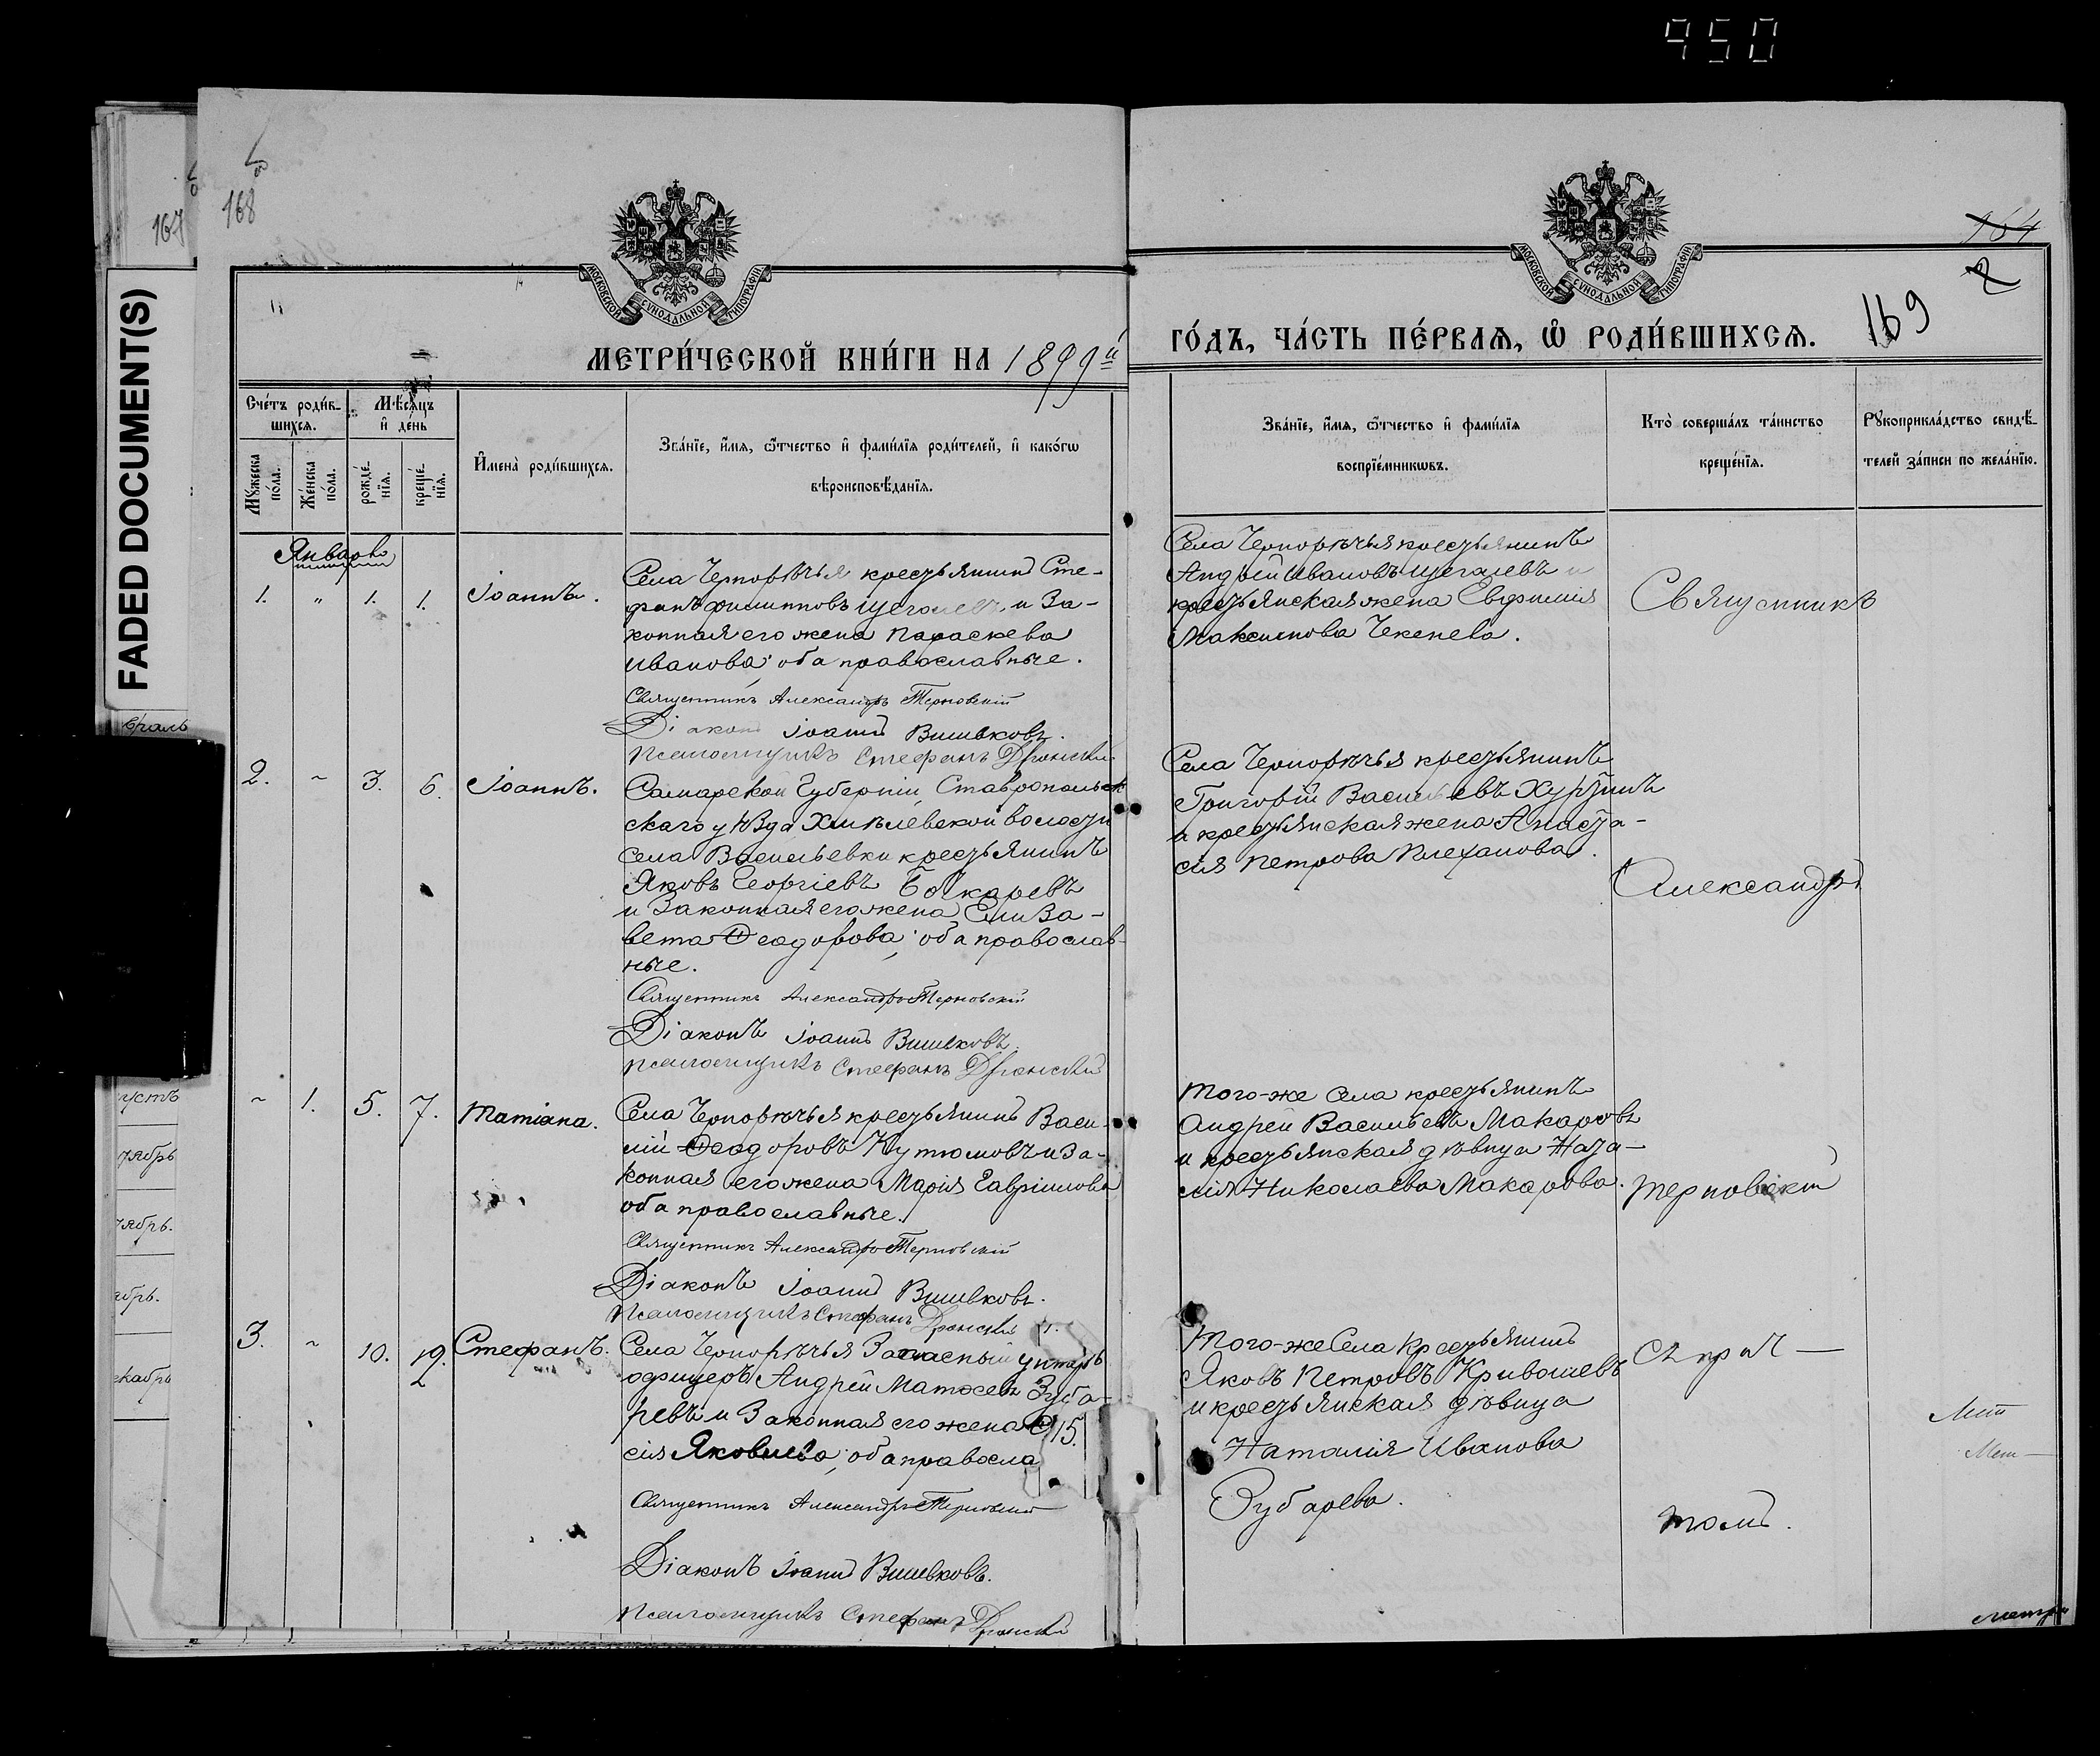 950
167
168
169
164
2
FADED DOCUMENT(S)
МОСКОВСКОЙ СѴНОДАЛЬНОЙ ТИПОГРАФІИ
МОСКОВСКОЙ СѴНОДАЛЬНОЙ ТИПОГРАФІИ
МЕТРИ́ЧЕСКОЙ КНИ́ГИ НА 1899й
ГО́ДЪ, ЧА́СТЬ ПЕ́РВАѦ, Ѡ РОДИ́ВШИХСѦ.
Сче́тъ роди́в-
шихсѧ.
Мѣ́сѧцъ
и҆ де́нь
Мꙋ́жеска по́ла.
Же́нска по́ла.
рожде́-нїѧ.
креще́-нїѧ.
И҆мена̀ роди́вшихсѧ.
Зва́нїе, и҆́мѧ, ѻ҆́тчество и҆ фами́лїѧ роди́телей, и҆ како́гѡ
вѣроисповѣ́данїѧ.
Зва́нїе, и҆́мѧ, ѻ҆́тчество и҆ фами́лїѧ
воспрїе́мникѡвъ.
Кто̀ соверша́лъ та́инство
креще́нїѧ.
Рꙋкоприкла́дство свидѣ́-
телей за́писи по жела́нїю.
Январь
1. " 1. 1. Іоаннъ.
Села Чернорѣчья крестьянинъ Сте-
фанъ Филипповъ Щеголевъ и за-
конная его жена Параскева
Иванова; оба православные.
Священникъ Александръ Терновскій
Діаконъ Іоаннъ Вишвковъ.
Псаломщикъ Стефанъ
Села Чернорѣчья крестьянинъ
Андрей Ивановъ Щегалевъ и
крестьянская жена Евфимія
Максимова Чекенева.
Священникъ
2. ~ 3. 6. Іоаннъ.
Самарской Губерніи, Ставропольск
скаго уѣзда Хмѣлевской волости
села Васильевки крестьянинъ
Яковъ Георгіевъ Бочкаревъ
и законная его жена Елиза-
вета Ѳеодорова; оба православ-
ные.
Священникъ Александръ Терновскій
Діаконъ Іоаннъ Вишвковъ.
Псаломщикъ Стефанъ
Села Чернорѣчья крестьянинъ
Григорій Васильевъ Хурзинъ
и крестьянская жена Анаста-
сія Петрова Плеханова.
Александръ
~ 1. 5. 7. Татіана.
Села Чернорѣчья крестьянинъ Васи-
лій Ѳеодоровъ Кутюмовъ и за-
конная его жена Марія Гавріилова
оба православные.
Священникъ Александръ Терновскій
Діаконъ Іоаннъ Вишвковъ.
Псаломщикъ Стефанъ
Того-же села крестьянинъ
Андрей Васильевъ Макаровъ
и крестьянская дѣвица Ната-
лія Николаева Макарова.
Терновскій
3. ~ 10. 12. Стефанъ.
Села Чернорѣчья Запасный унтеръ
офицеръ Андрей Матѳеевъ Зуба-
ревъ и законная его жена
сія Яковлева; оба правосла
15.
Священникъ Александръ Терновскій
Діаконъ Іоаннъ Вишвковъ.
Псаломщикъ Стефанъ
Того-же Села Крестьянинъ
Яковъ Петровъ Кривошеевъ
и крестьянская дѣвица
Наталія Иванова
Зубарева.
Съ прич—
томъ.